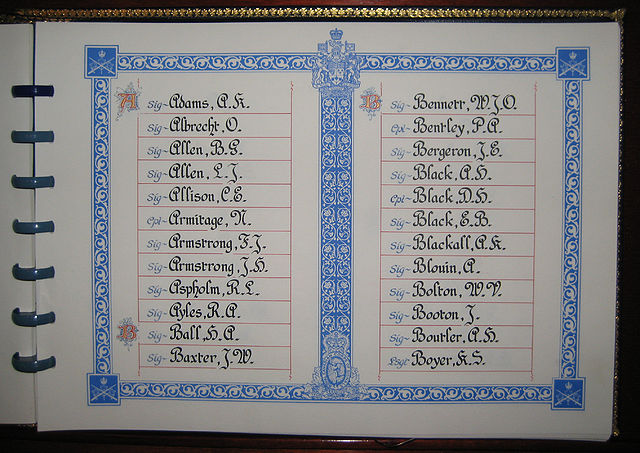 A
Sig~ Adams, A.K.
Sig~ Albrecht, O.
Sig~ Allen, B.G.
Sig~ Allen, L.J.
Sig~ Allison, C.E.
Cpl~ Armitage, N.
Sig~ Armstrong, F.J.
Sig~ Armstrong, J.H.
Sig~ Aspholm, R.L.
Sig~ Ayles, R.A.
B
Sig~ Ball, H.A.
Sig~ Baxter, J.W.
B
Sig~ Bennett, W.J.O.
Cpl~ Bentley, P.A.
Sig~ Bergeron, J.E.
Sig~ Black, A.H.
Cpl~ Black, D.H.
Sig~ Black, E.B.
Sig~ Blackall, A.K.
Sig~ Blouin, A.
Sig~ Bolton, W.V.
Sig~ Booton, J.
Sig~ Boutler, A.H.
LSgt~ Boyer, K.S.